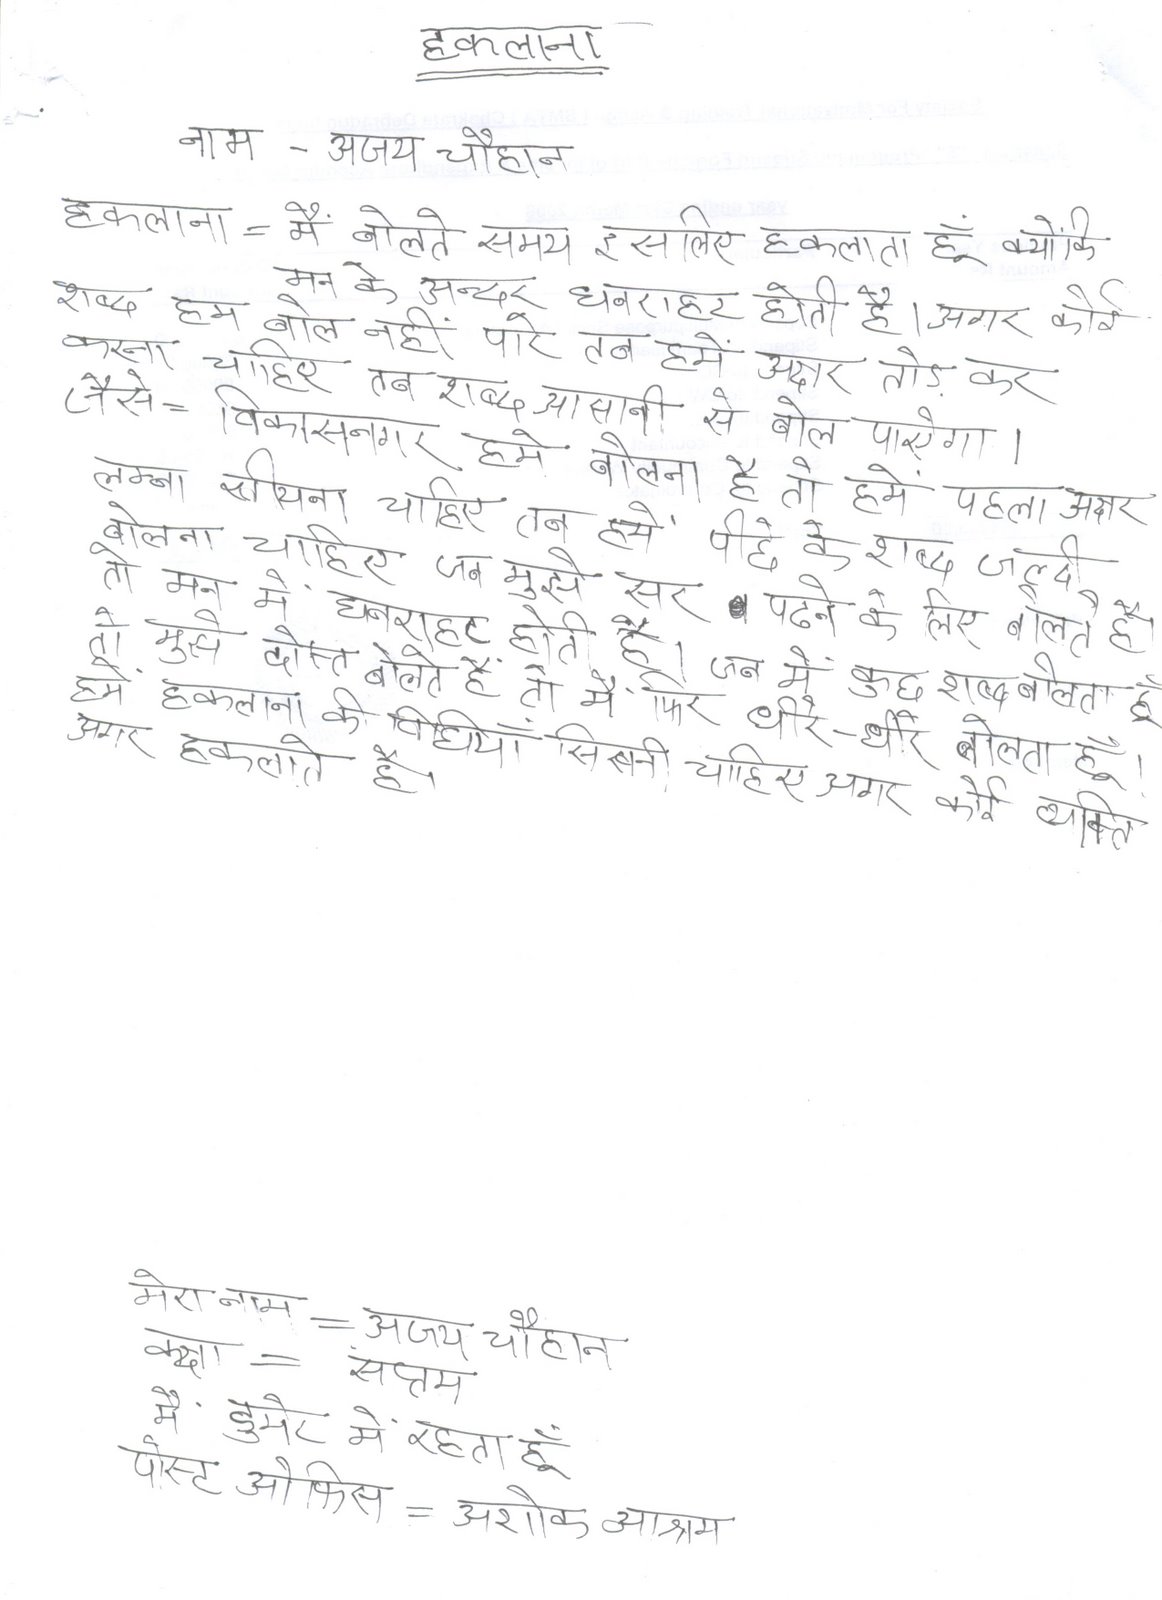 हकलाना
नाम - अजय चौहान
हकलाना = मैं बोलते समय इसलिए हकलाता हूँ क्योंकि
मन के अन्दर घबराहट होती है। अगर कोई
शब्द हम बोल नहीं पारे तब हमें अक्षर तोड़ कर
करना चाहिए तब शब्द आसानी से बोल पाऐगा।
जैसे = विकासनगर हमे बोलना है तो हमें पहला अक्षर
लम्बा खीचना चाहिए तब हमें पीछे के शब्द जल्दी
बोलना चाहिए जब मुझे सर पढने के लिए बोलते है।
तो मन में घबराहट होती है। जब में कुछ शब्द बोलता हूँ
तो मुझे दोस्त बोलते हैं तो मैं फिर धीरे-धीरे बोलता हूँ।
हमें हकलाना की विधियाँ सिखनी चाहिए अगर कोई व्यक्ति
अगर हकलाते है।
मेरा नाम = अजय चौहान
कक्षा = सप्तम
मैं डुमेट में रहता हूँ
पोस्ट ओफिस = अशोक आश्रम